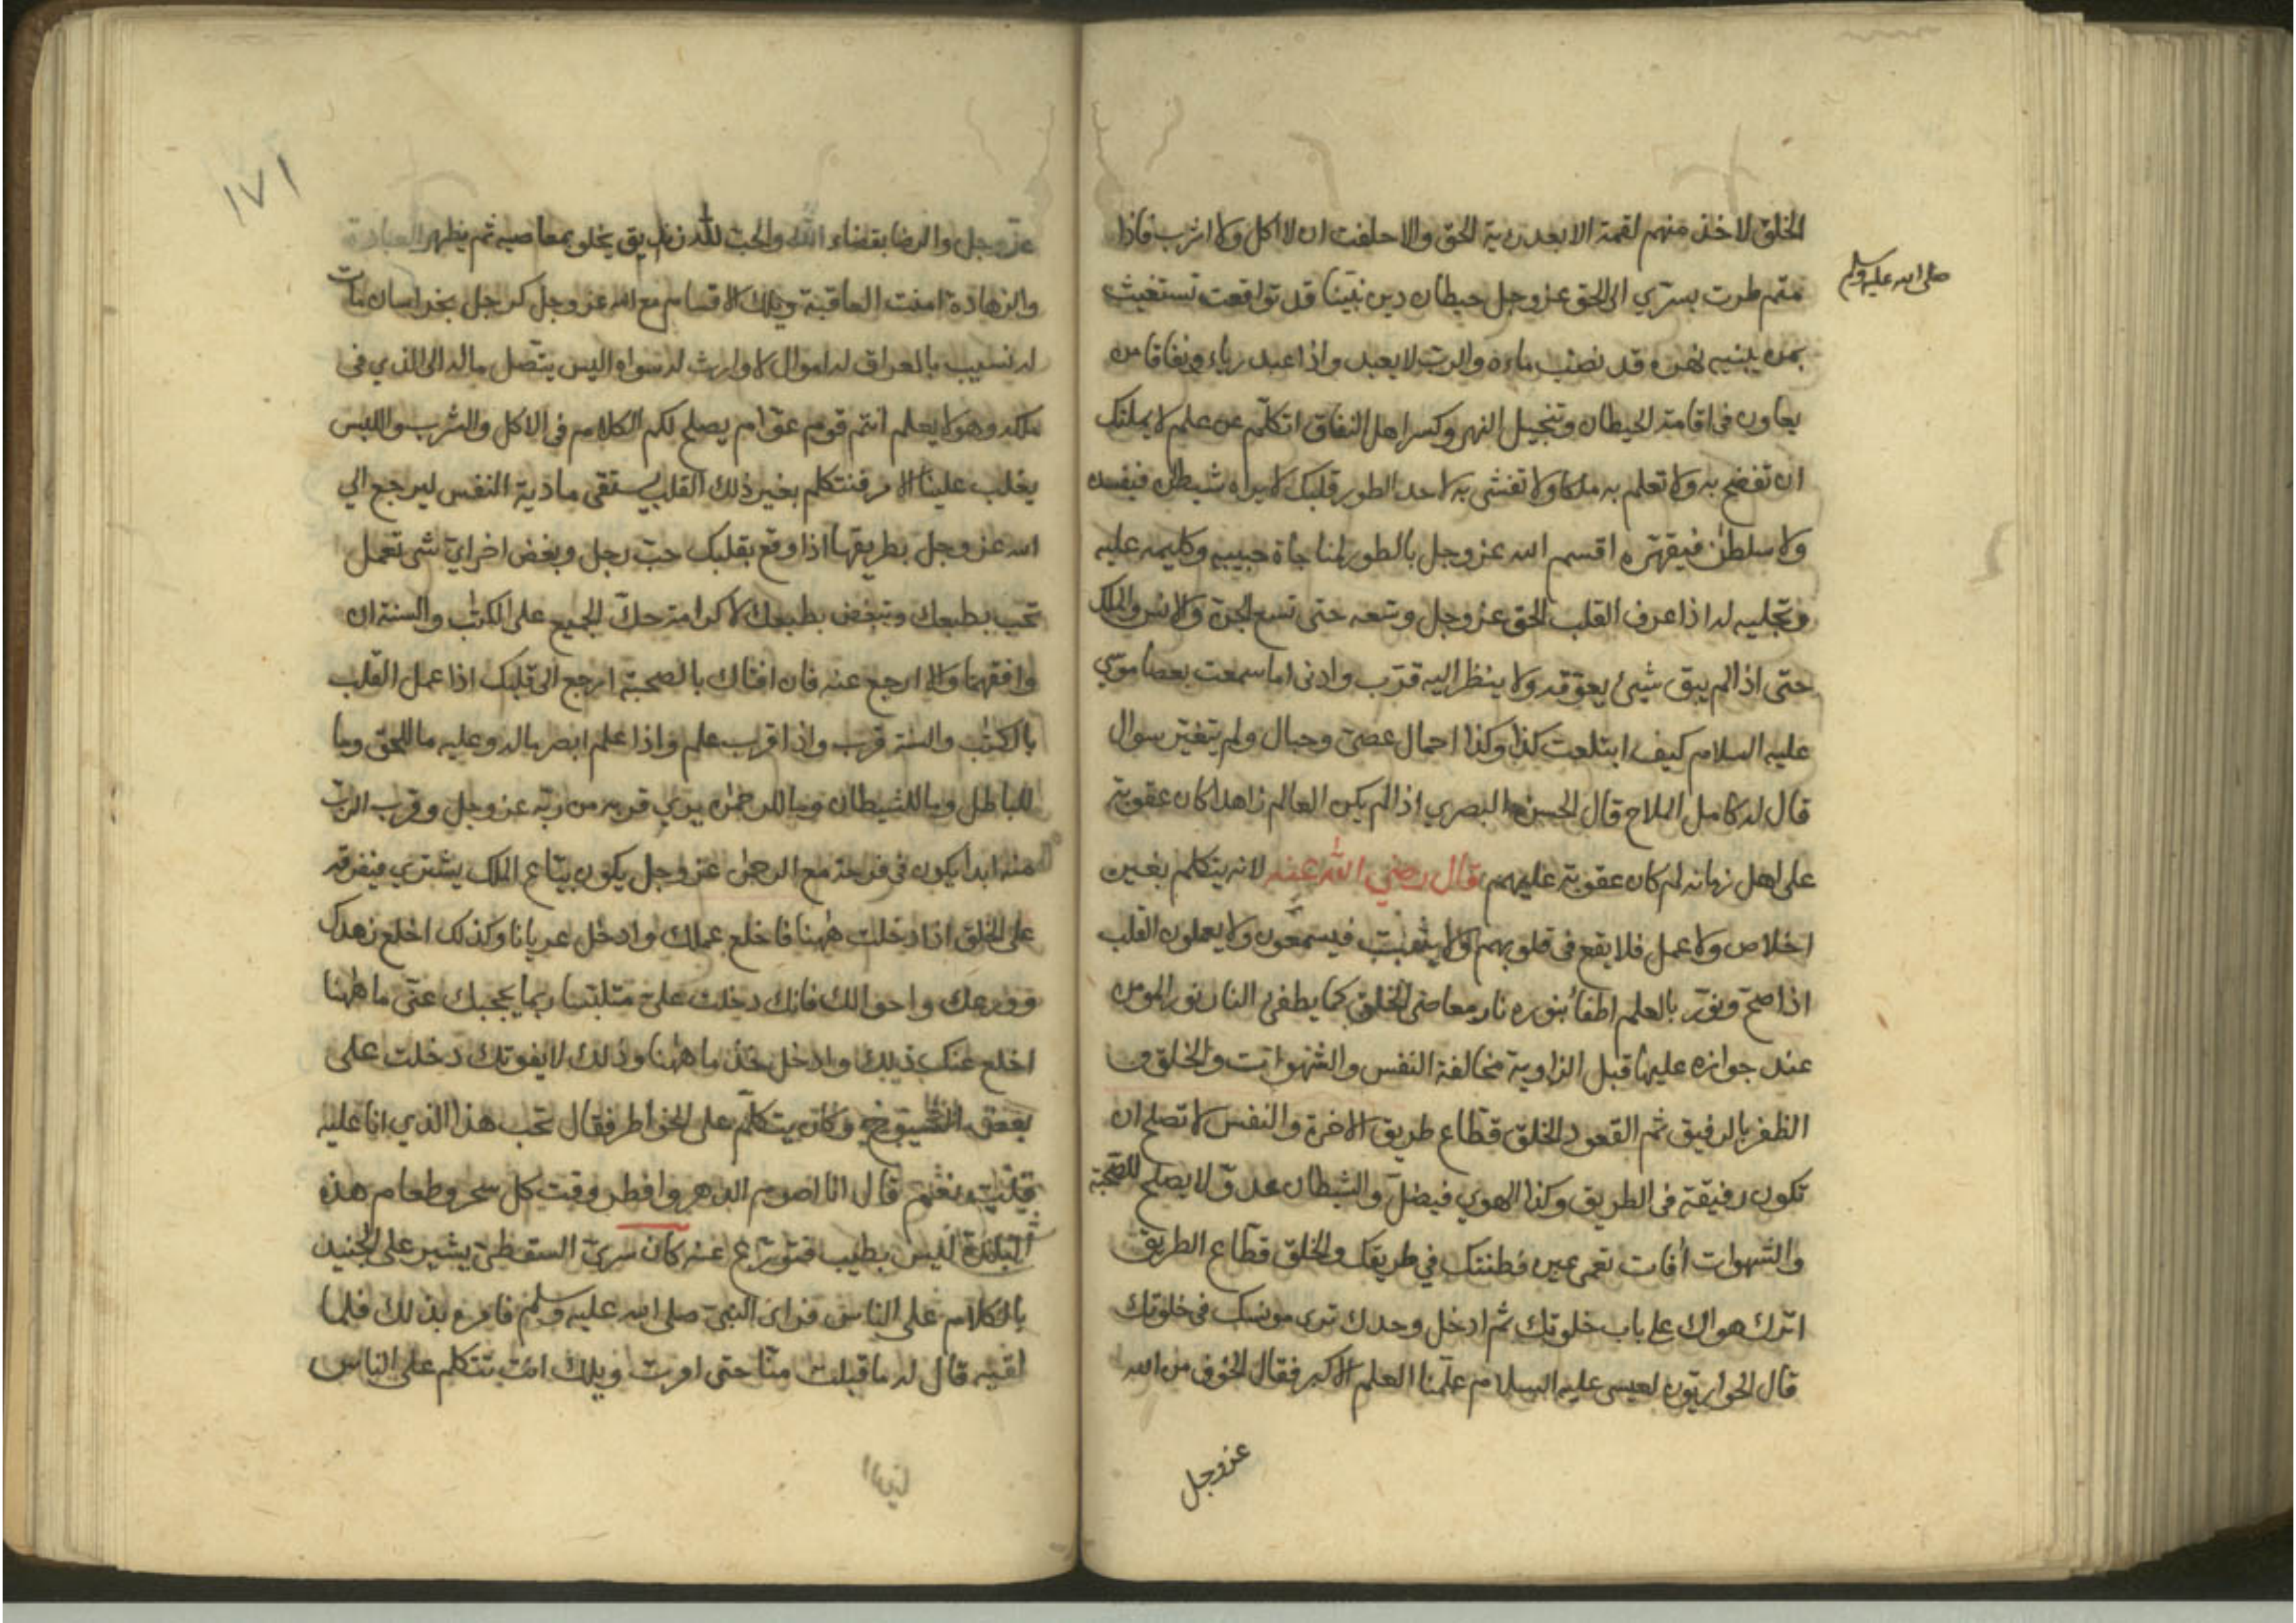 الخلق لاخذ منهم لقمة الا بعد رؤية الحق والا حلفت ان لا اكل ولا اشرب فاذا
متم طرت بسري الى الحق عز وجل حيطان دين نبينا قد تواقعت تستغيث
صلى الله عليه وسلم
بمن يبنيه نهره قد نضب ماءه والرب لا يعبد واذا عبد رياء ونفاقا من
يعاون في اقامة الحيطان وتنجيل النهر وكسر اهل النفاق اتكلم عن علم لا يملنك
ان تفضح به ولا تعلم به ملكا ولا تفشى به لاحد الطور قلبك لا يراه شيطان فيفسده
ولا سلطن فيقهره اقسم الله عز وجل بالطور لمناجاة حبيبه وكليمه عليه
وتجليه له اذا عرف القلب الحق عز وجل وسعه حتى تسع الجن والانس والملك
حتى اذا لم يبق شيئ يعوقه ولا ينظر اليه قرب وادنى اما سمعت بعصا موسي
عليه السلام كيف ابتلعت كذا وكذا احمال عصي وحبال ولم يتغير سوال
قال له كامل الملاح قال الحسن البصري اذا لم يكن العالم زاهدا كان عقوبة
على اهل زمانه لم كان عقوبة عليهم قال رضي الله عنه لانه يتكلم بغير
اخلاص ولا عمل فلا يقع في قلوبهم ولا يثبت فيسمعون ولا يعملون القلب
اذا صح ونور بالعلم اطفأ بنوره نار معاصى الخلق كما يطفئ النار نور المومن
عند جوازه عليها قبل الزاوية مخالفة النفس والشهوات والخلق و
الظفر بالرفيق ثم القعود الخلق قطاع طريق الاخرة والنفس لا تصلح ان
تكون رفيقة فى الطريق وكذا الهوي فيضل والشيطان عدو لا يصلح للصحبة
والشهوات أفات تعمى عين فطنتك في طريقك والخلق قطاع الطريق
اترك هواك على باب خلوتك ثم ادخل وحدك ترى مونسك فى خلوتك
قال الحواريون لعيسى عليه السلام علمنا العلم الاكبر فقال الخوف من الله
عز وجل
١٧١
عز وجل والرضا بقضاء الله والحب لله زنديق يخلو بمعاصيه ثم يظهر العبادة
والزهادة امنت العاقبة ويلك الاقسام مع الله عز وجل كرجل بخراسان مات
له نسيب بالعراق له اموال لا وارث له سواه اليس يتصل ماله الى الذي فى
ملكه وهو لا يعلم انتم قوم عوام يصلح لكم الكلام فى الاكل والشرب واللبس
يغلب علينا الامر فنتكلم بغير ذلك القلب يستقى ماذية النفس ليرجع الي
الله عز وجل بطريقها اذا وقع بقلبك حب رجل وبغض اخر اي شى تعمل
تحب بطبعك وتبغض بطبعك لا كرامة حك الجميع على الكتب والسنة ان
وافقهما والا ارجع عنه فان افتاك بالصحبة ارجع الى قلبك اذا عمل القلب
بالكتب والسنة قرب واذا قرب علم واذا علم ابصر ماله وعليه ما للحق وما
للباطل وما للشيطان وما للرحمن يري قربه من ربه عز وجل وقرب الرب
منه ابدا يكون فى فرحة مع الرحمن عز وجل يكون بياع الملك يشتري فيفرقه
على الخلق اذا دخلت ههنا فاخلع عملك وادخل عريانا وكذلك اخلع زهدك
وورعك واحوالك فانك دخلت علي متلبسا ربما يحجبك عني ما ههنا
اخلع عنك ذلك وادخل خذ ما ههنا وذلك لا يفوتك دخلت على
بعض الشيوخ وكان يتكلم على الخواطر فقال تحب هذا الذي انا عليه
قلت نعم قال انا اصوم الدهر وافطر وقت كل سحر وطعام هذه
البلدة ليس بطيب فتورع عنه كان سري السقطي يشير على الجنيد
بالكلام على الناس فراى النبي صلى الله عليه وسلم فامره بذلك فلما
لقيه قال له ما قبلت منا حتى امرت ويلك انت تتكلم على الناس